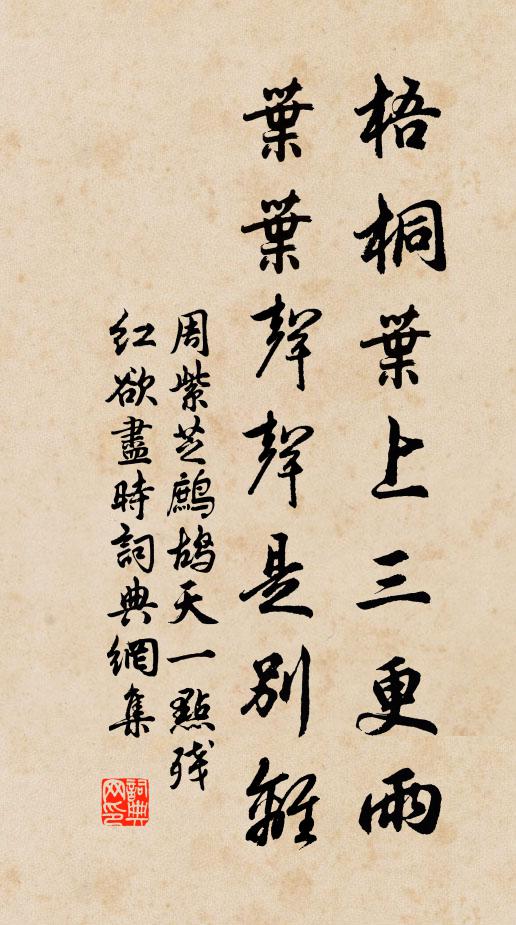 梧桐葉上三更雨
葉葉聲聲是別離
周紫芝鷓鴣天一點残
红欲盡時詞典網集
詞典
网印